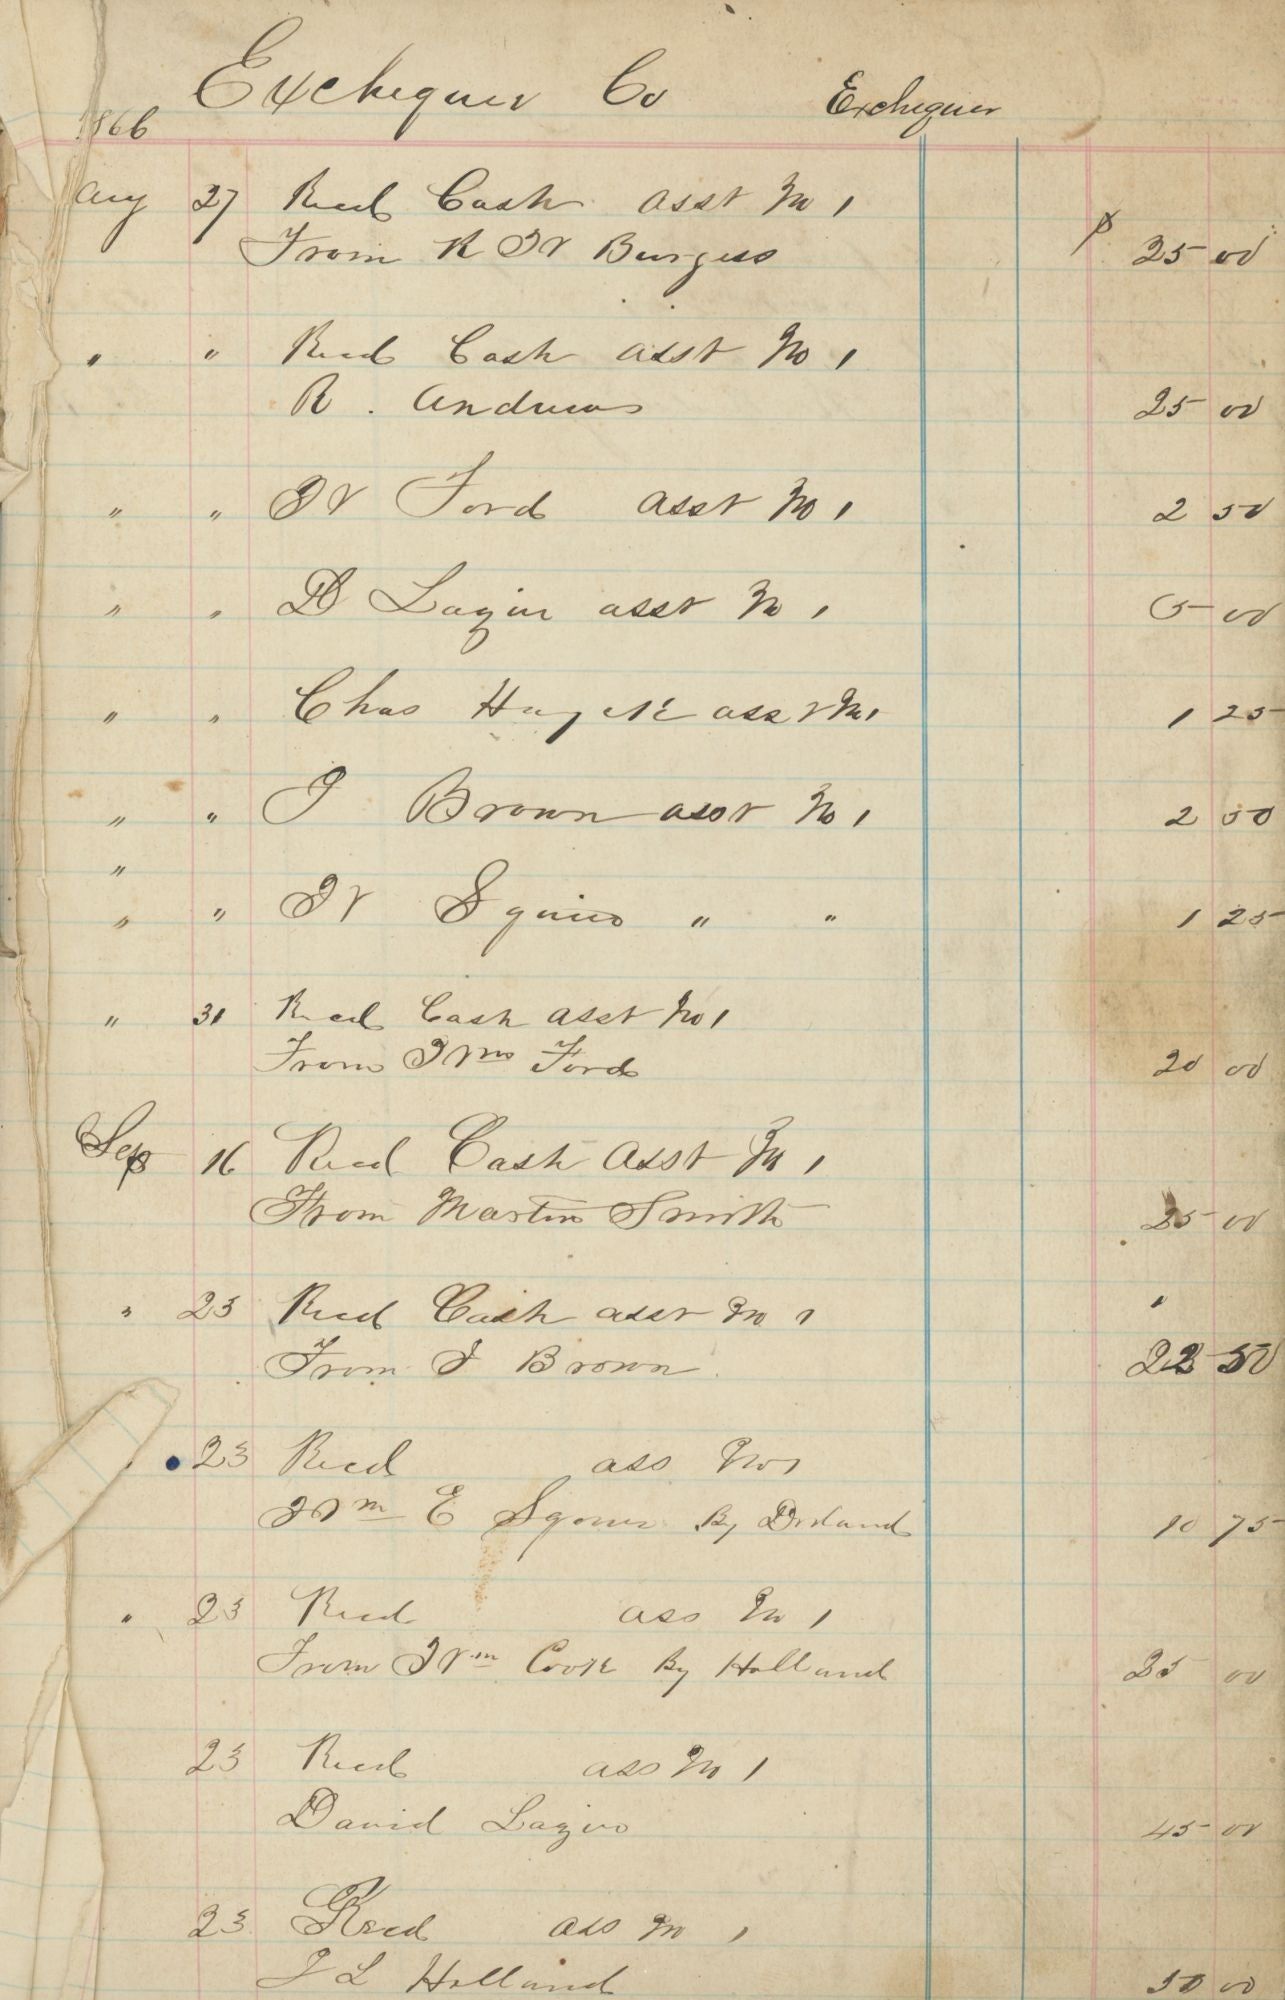 Exchequer Co Exchequer
1866
Aug 27 Recd Cash asst No 1
From R W Burgess $ 25 00
" " Recd Cash asst No 1
R. Andrews 25 00
" " W Ford asst No 1 2 50
" " D Lazier asst No 1 5 00
" " Chas asst No 1 1 25
" " J Brown asst No 1 2 50
"
" " W Squires " " 1 25
" 31 Recd Cash asst No 1
From Wm Ford 20 00
Sep 16 Recd Cash asst No 1
From Martin Smith 25 00
" 23 Recd Cash asst No 1
From J Brown 22 50
23 Recd ass No 1
Wm E By 10 75
" 23 Recd ass No 1
From Wm Cook By Holland 25 00
23 Recd ass No 1
David Lazier 45 00
23 Recd ass No 1
J L Holland 50 00